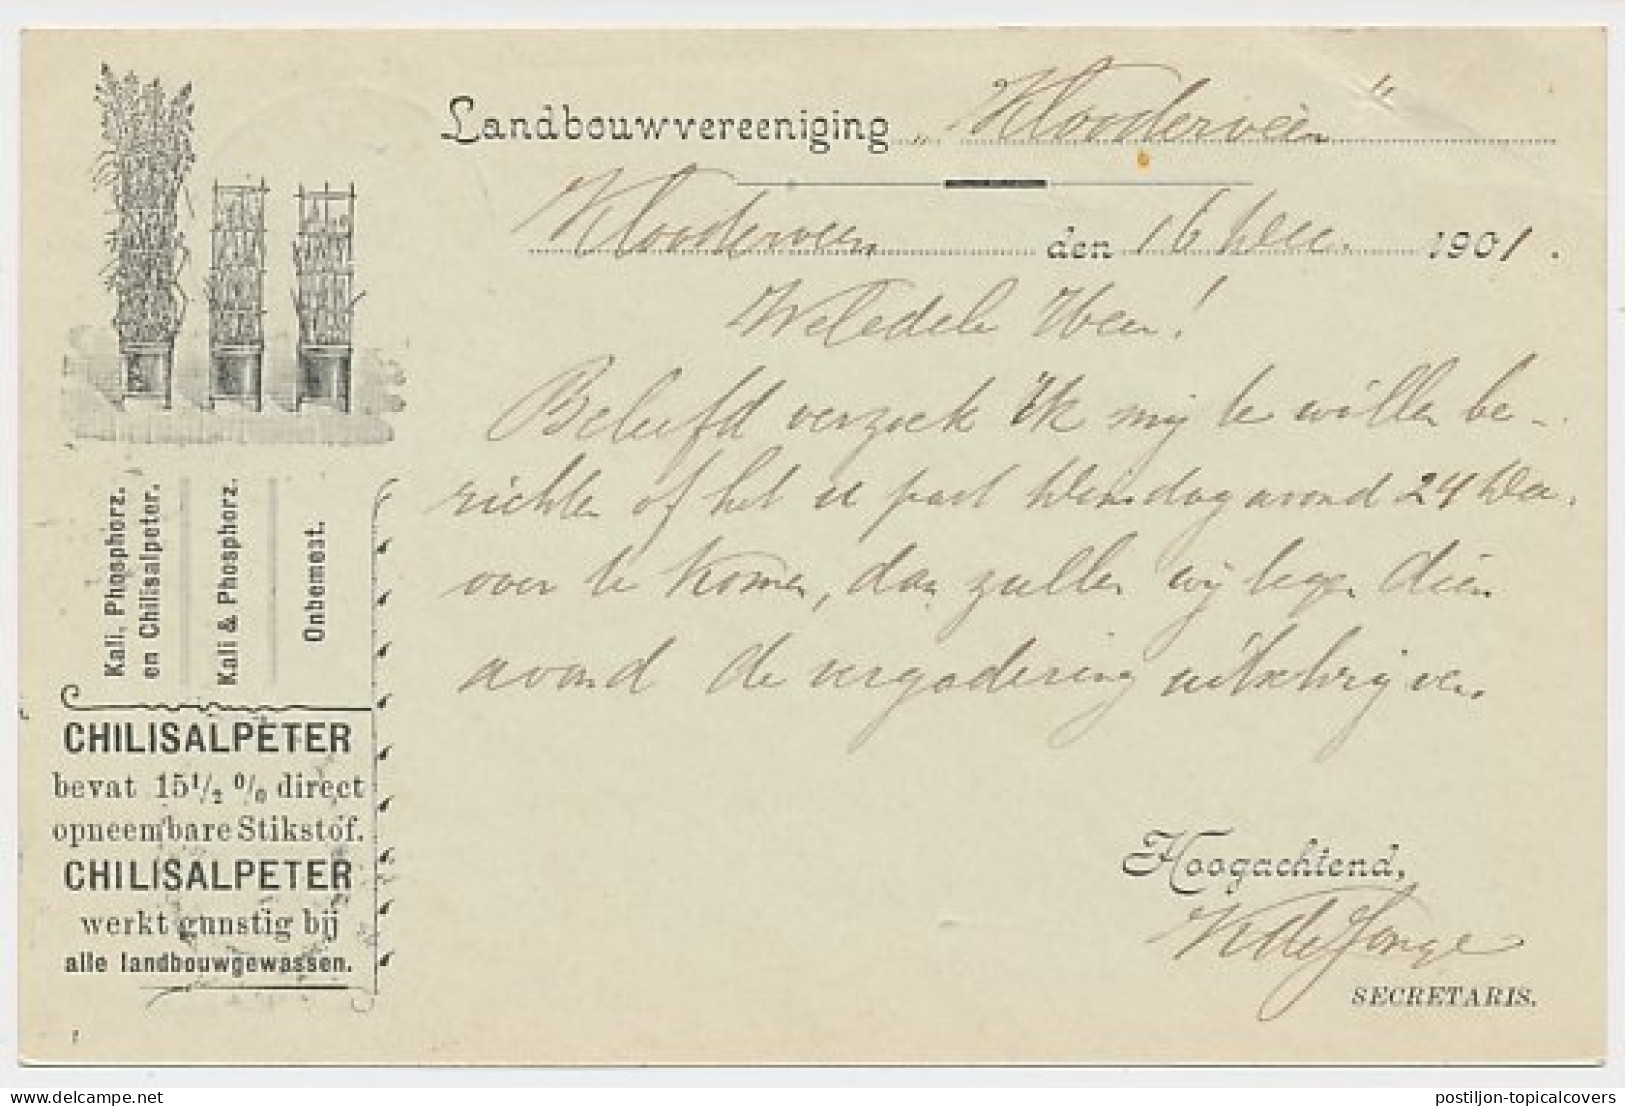 Landbouwvereeniging „Kloosterveen"
Kloosterveen den 16 Dec. 1901.
WelEdele Heer!
Beleefd verzoek ik mij te willen be-
richten of het u past Dinsdag avond 24 Dec.
over te komen, dan zullen wij tegen dien
avond de vergadering uitschrijven.
Hoogachtend,
K de Jonge
SECRETARIS.
Kali, Phosphorz.
en Chilisalpeter.
Kali & Phosphorz.
Onbemest.
CHILISALPETER
bevat 15 1/2 % direct
opneembare Stikstof.
CHILISALPETER
werkt gunstig bij
alle landbouwgewassen.
postiljon-topicalcovers
www.delcampe.net